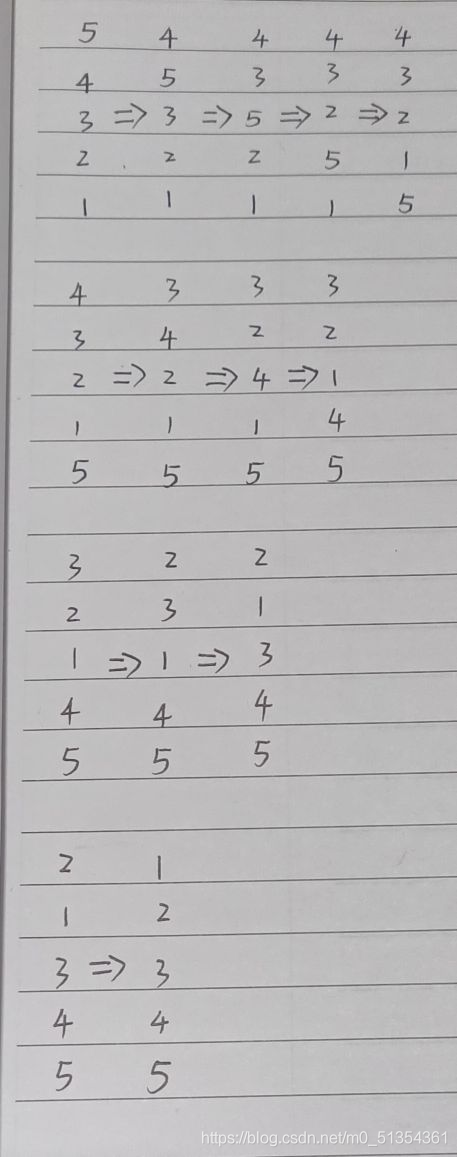 5 4 4 4 4
4 5 3 3 3
3 ⇒ 3 ⇒ 5 ⇒ 2 ⇒ 2
2 2 2 5 1
1 1 1 1 5
4 3 3 3
3 4 2 2
2 ⇒ 2 ⇒ 4 ⇒ 1
1 1 1 4
5 5 5 5
3 2 2
2 3 1
1 ⇒ 1 ⇒ 3
4 4 4
5 5 5
2 1
1 2
3 ⇒ 3
4 4
5 5
https://blog.csdn.net/m0_51354361